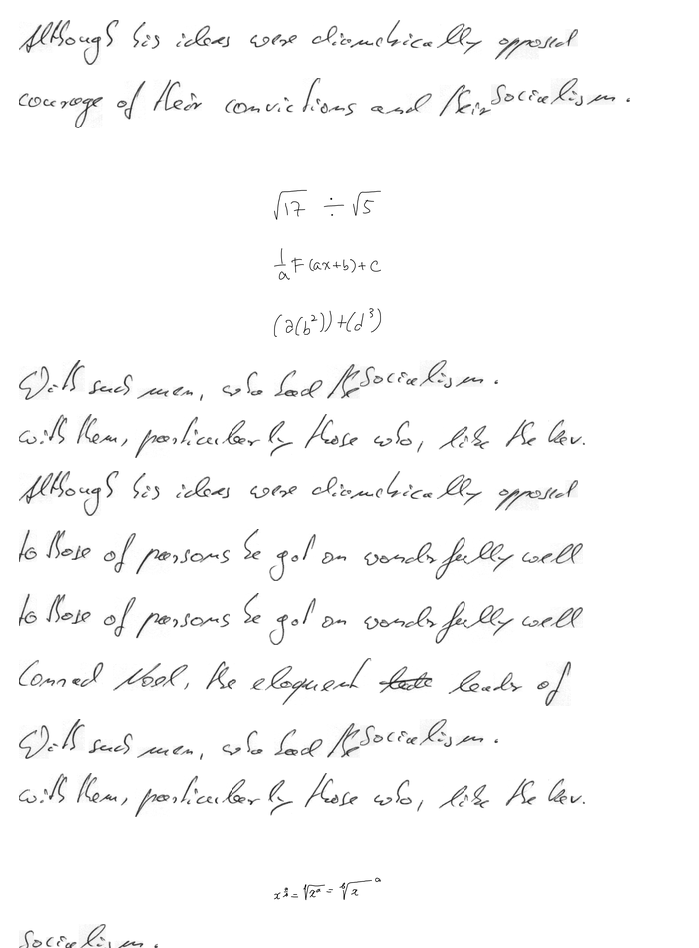 Although his ideas were diametrically opposed
courage of their convictions and their Socialism.
√17 ÷ √5
1/a F(ax+b)+c
(a(b²))+(d³)
With such men, who had the Socialism.
with them, particularly those who, like the Rev.
Although his ideas were diametrically opposed
to those of persons he got on wonderfully well
to those of persons he got on wonderfully well
Conrad Noel, the eloquent leader of
With such men, who had the Socialism.
with them, particularly those who, like the Rev.
Socialism.